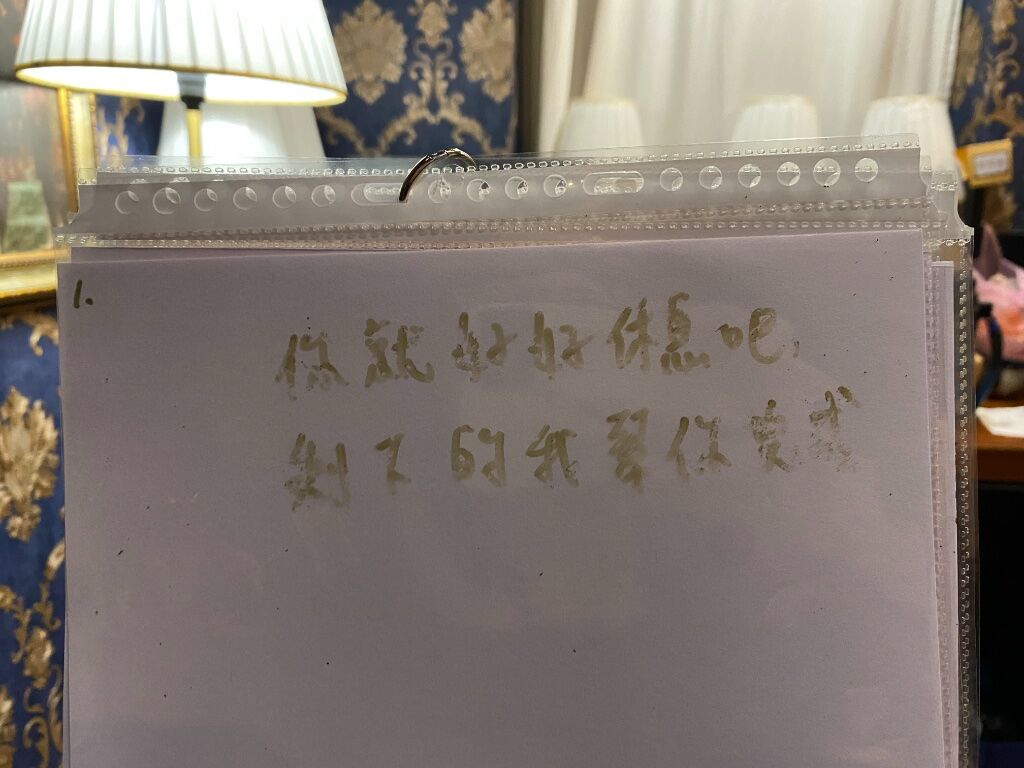 1.
你就好好休息吧,
剩下的我帮你成